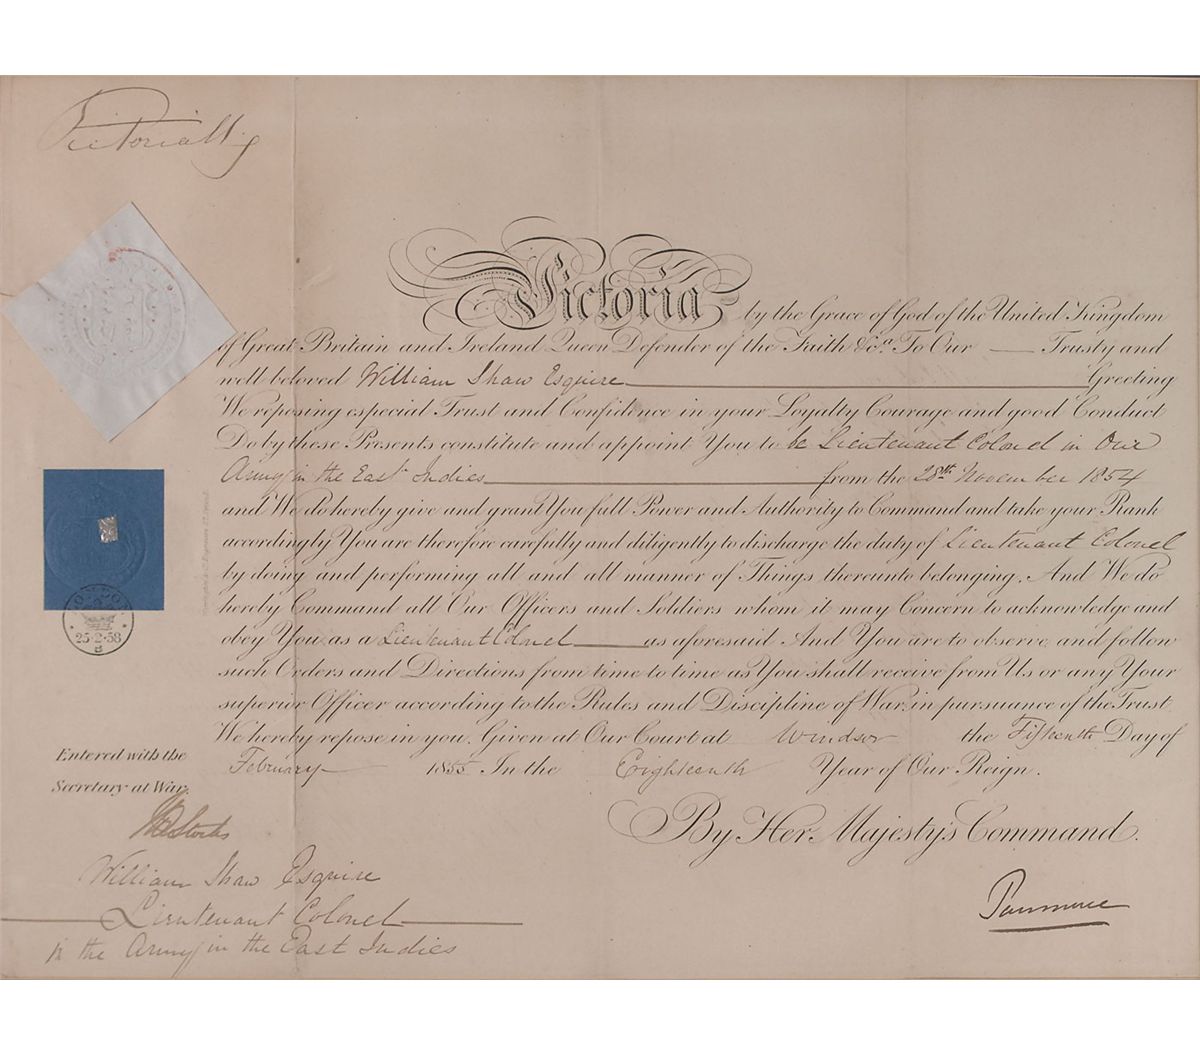 Victoria R
Victoria by the Grace of God of the United Kingdom
of Great Britain and Ireland Queen Defender of the Faith &c.a To Our Trusty and
well beloved William Shaw Esquire Greeting
We reposing especial Trust and Confidence in your Loyalty Courage and good Conduct
Do by these Presents constitute and appoint You to be Lieutenant Colonel in Our
Army in the East Indies from the 28th November 1854
and We do hereby give and grant You full Power and Authority to Command and take your Rank
accordingly You are therefore carefully and diligently to discharge the duty of Lieutenant Colonel
by doing and performing all and all manner of Things thereunto belonging. And We do
hereby Command all Our Officers and Soldiers whom it may Concern to acknowledge and
obey You as a Lieutenant Colonel as aforesaid And You are to observe and follow
such Orders and Directions from time to time as You shall receive from Us or any Your
superior Officer according to the Rules and Discipline of War, in pursuance of the Trust
We hereby repose in you. Given at Our Court at Windsor the Fifteenth Day of
February 1855 In the Eighteenth Year of Our Reign.
By Her Majesty's Command.
Panmure
LONDON
25-2-58
B
Entered with the
Secretary at War.
William Shaw Esquire
Lieutenant Colonel
in the Army in the East Indies